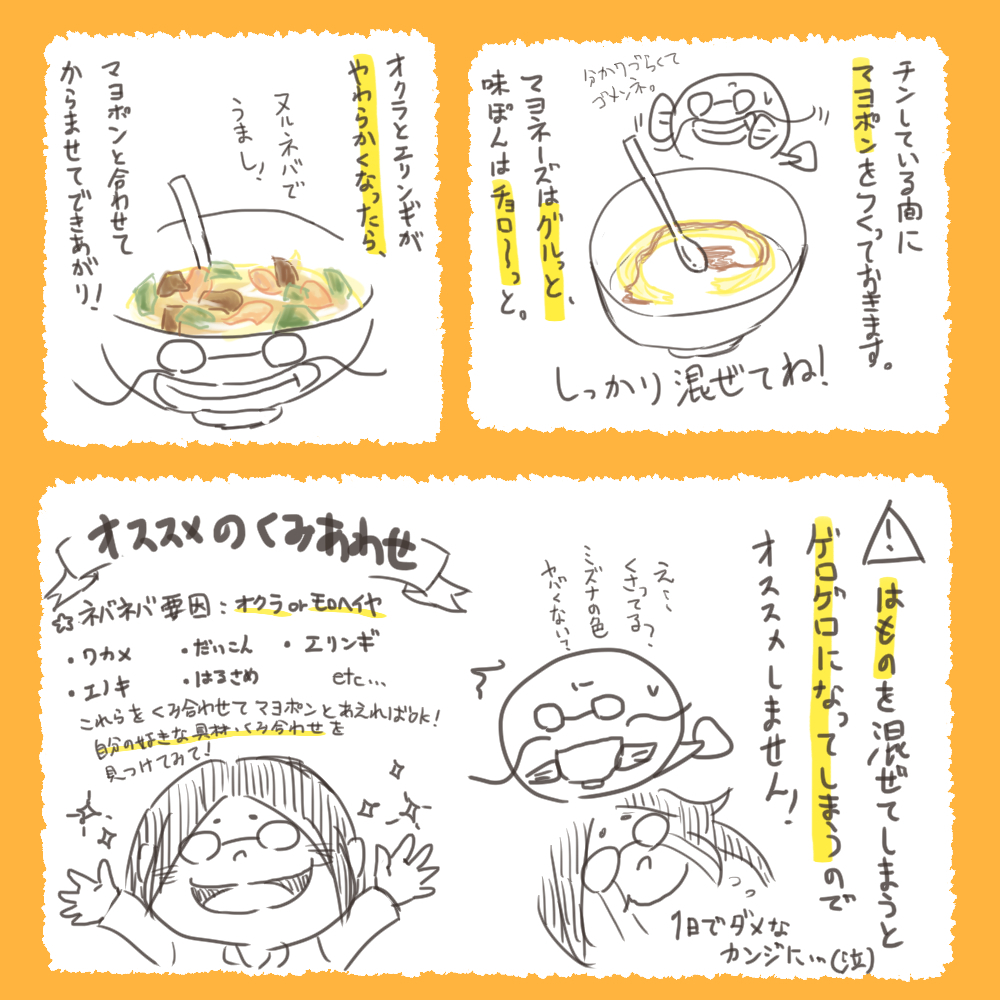 チンしている間に
マヨポンをつくっておきます。
分かりづらくて
ゴメンネ。
マヨネーズはグルっと、
味ぽんはチョロ〜っと。
しっかり混ぜてね!
オクラとエリンギが
やわらかくなったら、
ヌルネバで
うまし!
マヨポンと合わせて
からませてできあがり!
!
はものを混ぜてしまうと
ゲロゲロになってしまうので
オススメしません!
え〜〜
くさってる?
ミズナの色
ヤバくない?
1日でダメな
カンジに…(泣)
オススメのくみあわせ
☆ネバネバ要因:オクラorモロヘイヤ
・ワカメ ・だいこん ・エリンギ
・エノキ ・はるさめ etc…
これらをくみ合わせてマヨポンとあえればOK!
自分の好きな具材・くみ合わせを
見つけてみて!